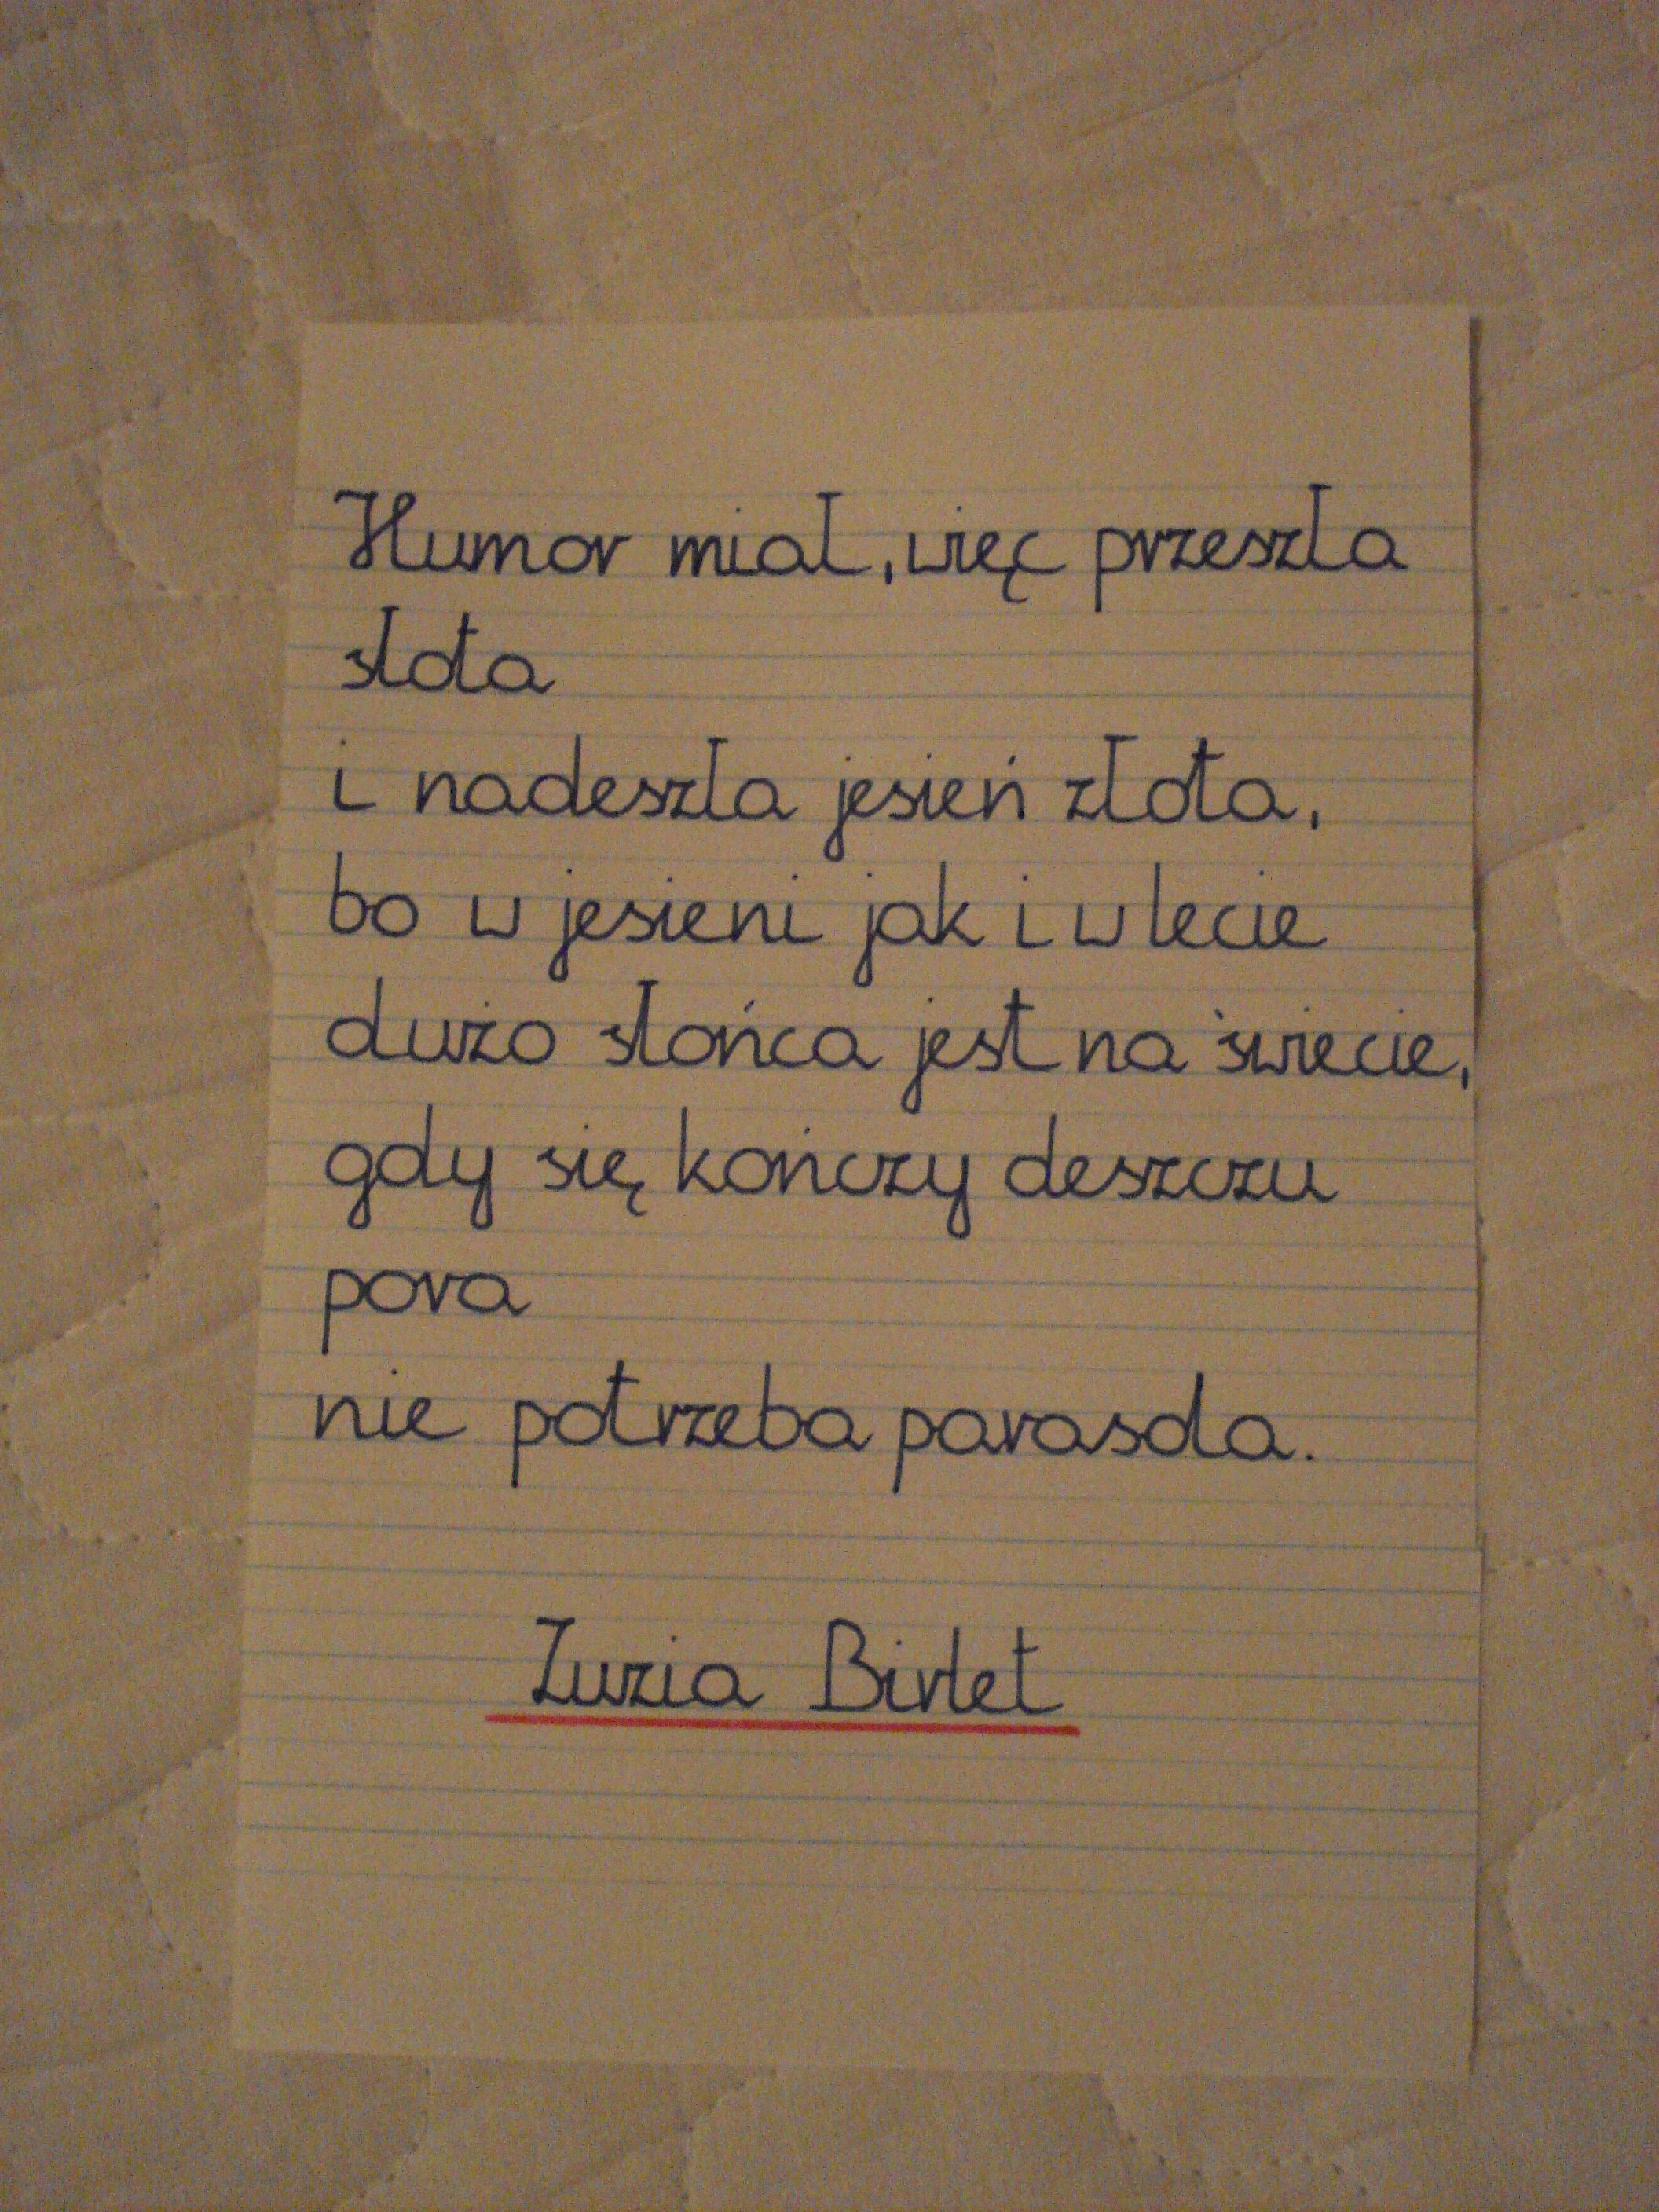 Humor miał, więc przeszła
słota
i nadeszła jesień złota,
bo w jesieni jak i w lecie
dużo słońca jest na świecie,
gdy się kończy deszczu
pora
nie potrzeba parasola.
Zuzia Birlet